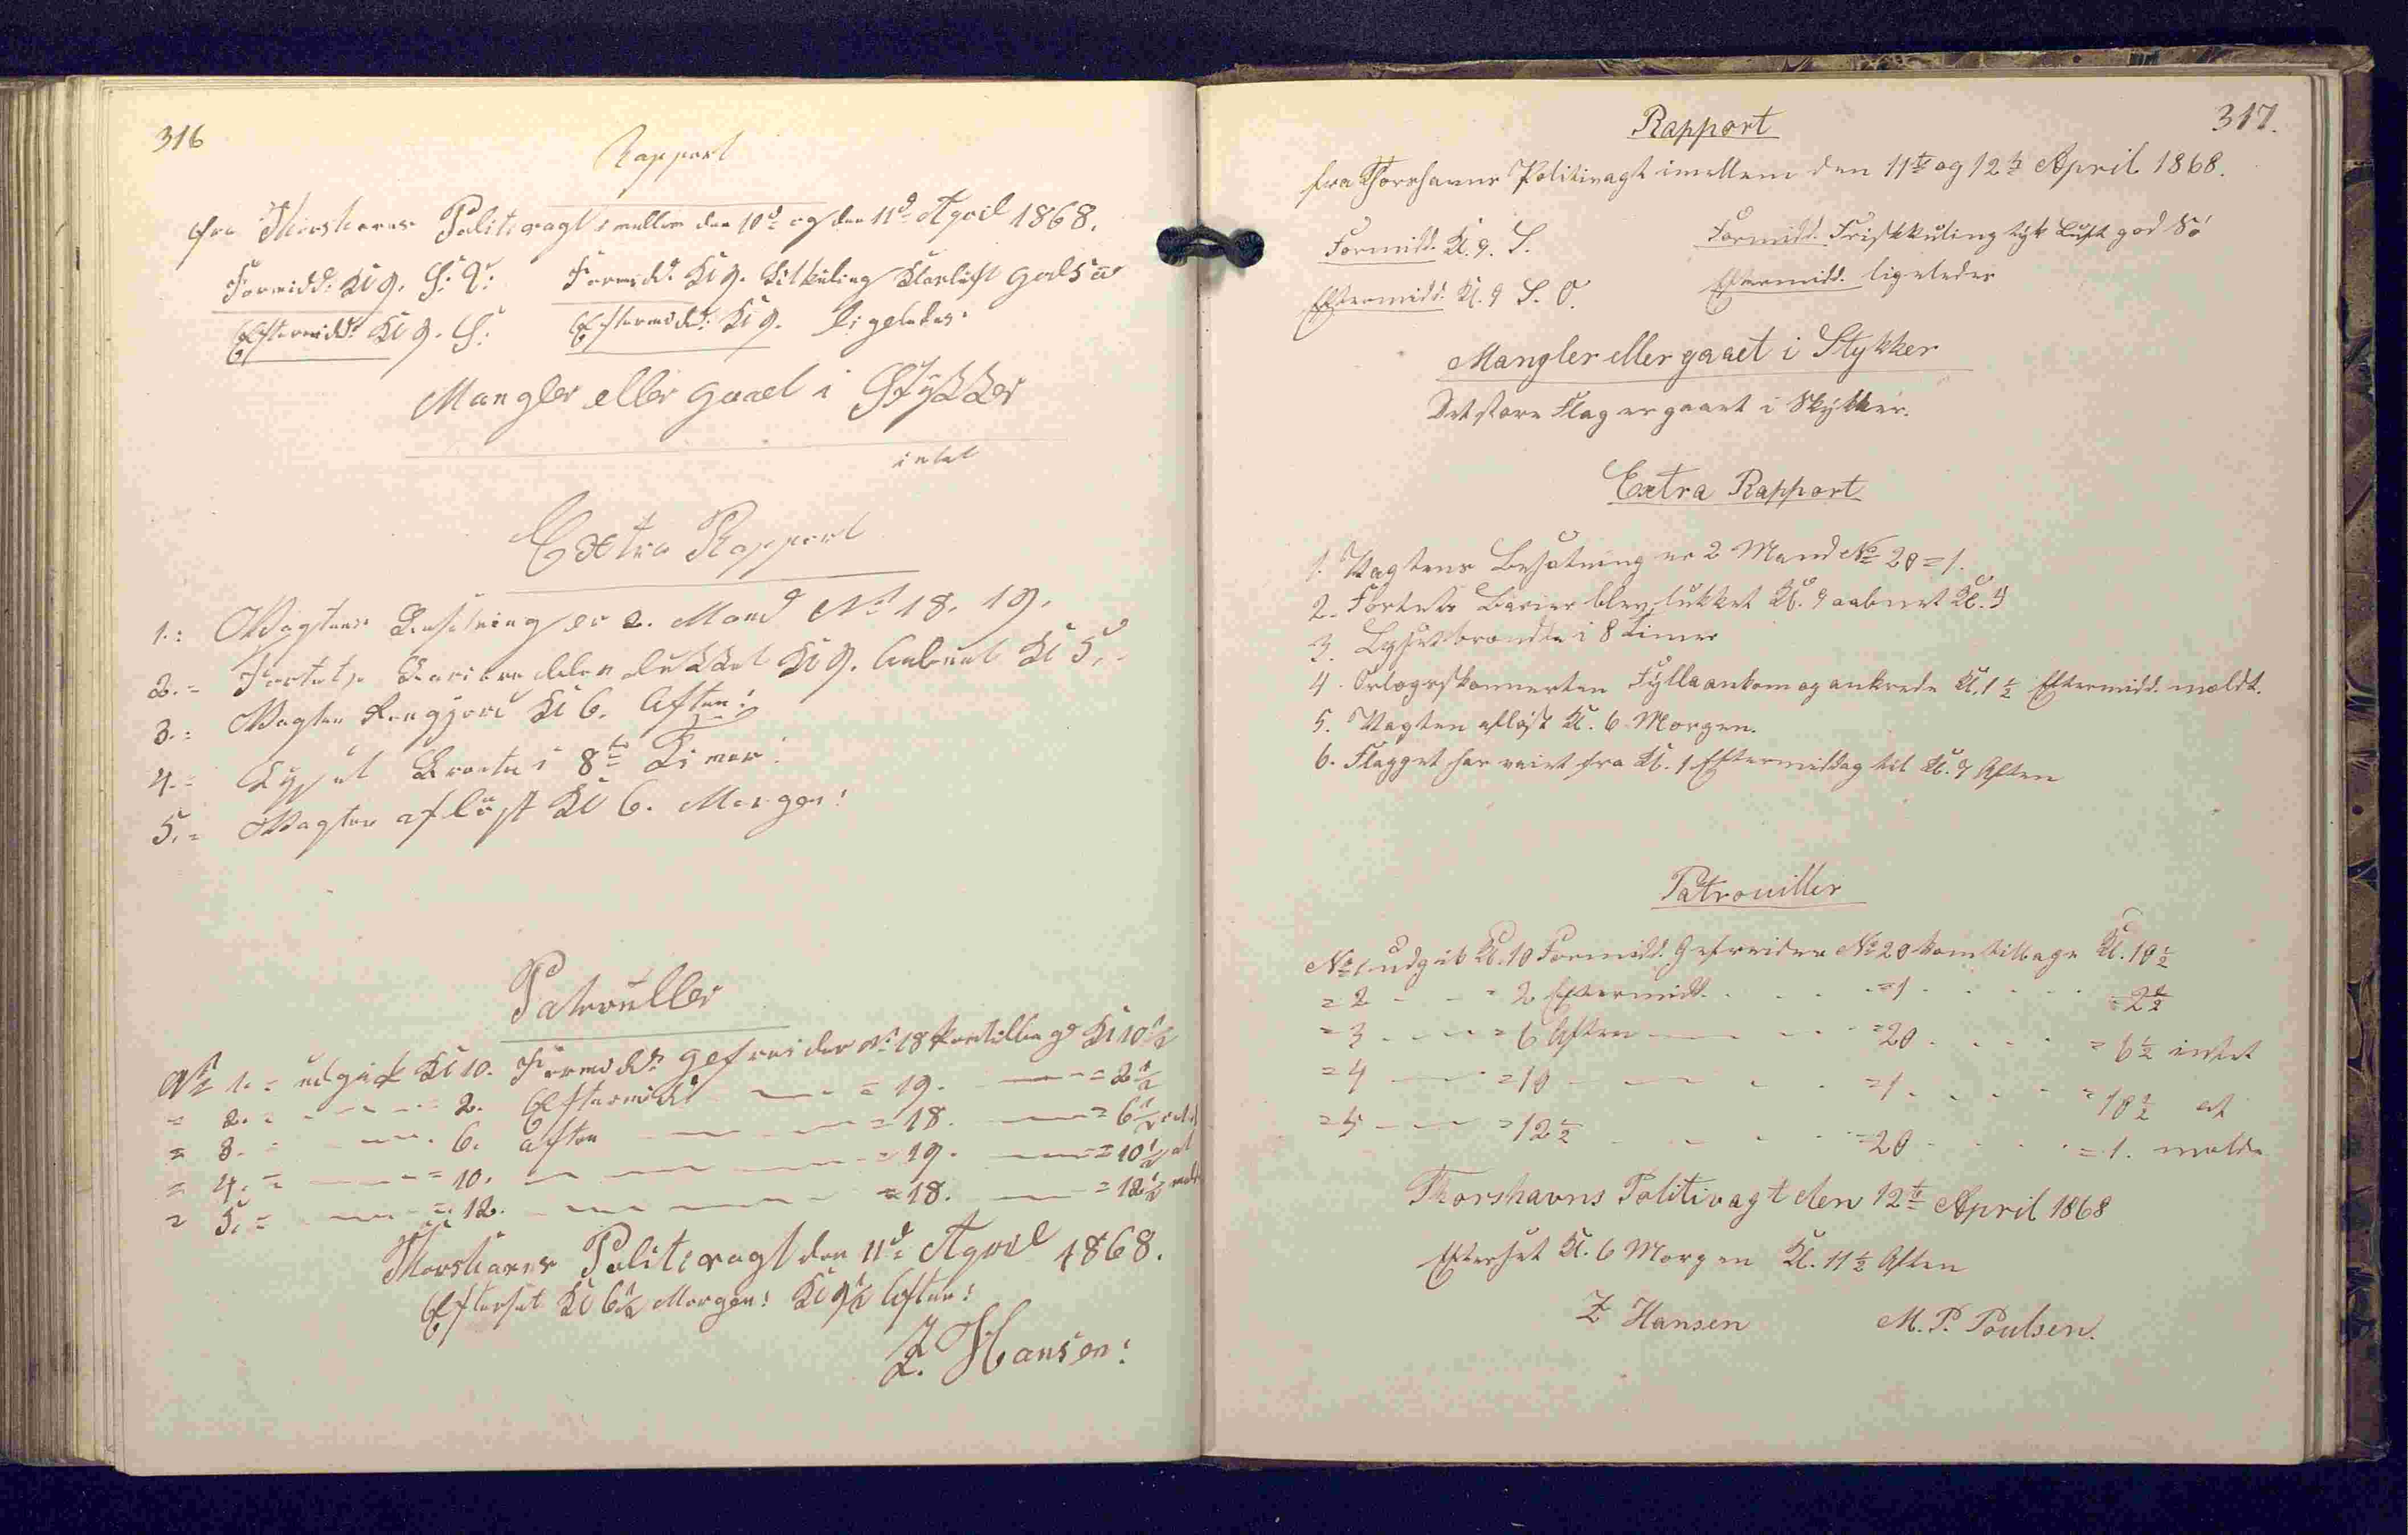 316
Rapport
fra Thorshavns Politivagt imellem den 10d og den 11d April 1868.
Formidd: Kl 9. S: V: Formidd: Kl 9. Litkuling Klarluft god Sö
Eftermidd: Kl 9. S: Eftermidd: Kl 9. ligeledes.
Mangler eller gaaet i Stykker
intet
Extra Rapport
1.: Vagtens Besetning er 2. Mand No 18. 19.
2.= Fortets Bariere blev lukket Kl 9. Aabnet Kl 5.
3.: Vagten Rengjord Kl 6. Aften!
4.= Lyset Brænte i 8te Timer!
5.= Vagten aflöst Kl 6. Morgen!
Patruller
No 1.= udgik Kl 10. Formidd: gefreider No 18 kom tilbage Kl 10½
= 2.= - - - 2. Eftermidd: — = 19. — = 2½
= 3.= - - - 6. Aften — = 18. — = 6½
= 4.= — = 10. — — = 19. — = 10½ at
= 5.= — = 12. — — = 18. — = 12½
Thorshavns Politivagt den 11d April 1868.
Efterset Kl 6½ Morgen! Kl 9½ Aften!
Z. Hansen!
Rapport 317.
fra Thorshavns Politivagt imellem den 11te og 12te April 1868.
Formidd. Kl. 9. S. Formidd. Friskkuling tyk Luft god Sö
Eftermidd. Kl. 9 S. O. Eftermidd. ligeledes
Mangler eller gaaet i Stykker
Det store Flag er gaaet i Stykker.
Extra Rapport
1. Vagtens Besætning er 2 Mand No 20 = 1.
2. Fortets Barier blev lukket Kl. 9 aabnet Kl. 4
3. Lyset brændte i 8 Timer
4. Orlogsskonnerten Fylla ankom og ankrede Kl. 1½ Eftermidd. mældt.
5. Vagten aflöst Kl. 6 Morgen.
6. Flagget har vaiet fra Kl. 1 Eftermiddag til Kl. 7 Aften
Patrouiller
No 1 udgik Kl. 10 Formidd. Gefreider No 20 kom tilbage Kl. 10½
= 2 - - = 2 Eftermidd. . . . = 1 . . . . = 2½
= 3 . - - = 6 Aften — - - = 20 . . . . = 6½ intet
= 4 — = 10 - — - . = 1 . . . . = 10½ at
= 5 — = 12½ . - . . = 20 . . . . = 1. mælde
Thorshavns Politivagt den 12te April 1868
Efterset Kl. 6 Morgen Kl. 11½ Aften
Z Hansen M. P. Poulsen.